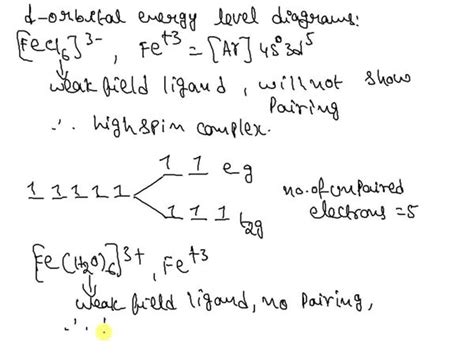 d-orbital energy level diagrams:
[FeCl6]3-, Fe+3 = [Ar] 4s0 3d5
weak field ligand, will not show
pairing
∴ high spin complex.
1 1 eg
1 1 1 1 1
no. of unpaired
electrons = 5
1 1 1 t2g
[Fe(H2O)6]3+, Fe+3
weak field ligand, no pairing,
∴